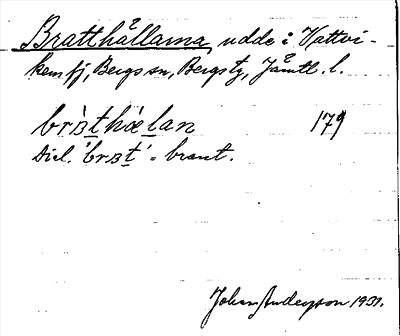 Bratthållarna, udde i Vattvi-
ken fj, Bergs sn, Bergs tg, Jämtl. l.
brᴀ̀t hœlan 179
Dial. 'brᴀt' = brant.
Johan Anderson 1931.